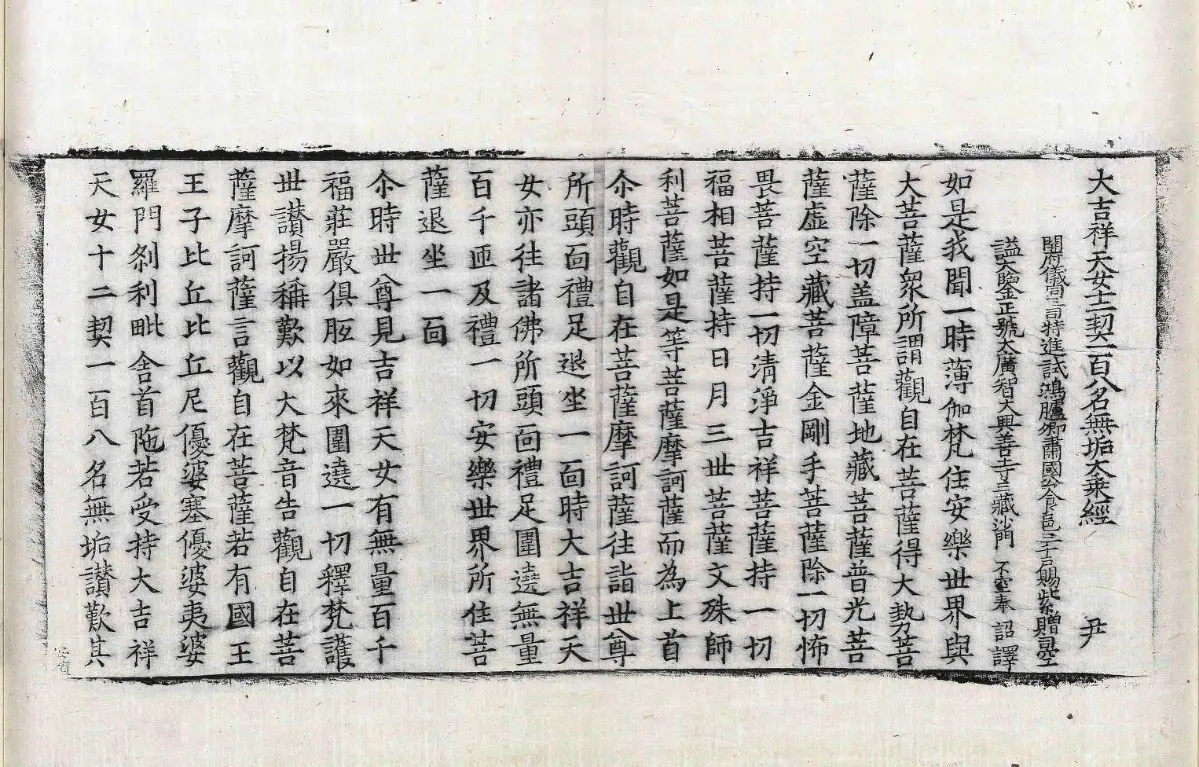 大吉祥天女十二契一百八名無垢大乘經 尹
開府儀同三司特進試鴻臚卿肅國公食邑三千戶賜紫贈司空
謚大鑒正號大廣智大興善寺三藏沙門 不空奉 詔譯
如是我聞一時薄伽梵住安樂世界與
大菩薩衆所謂觀自在菩薩得大勢菩
薩除一切盖障菩薩地藏菩薩普光菩
薩虛空藏菩薩金剛手菩薩除一切怖
畏菩薩持一切清淨吉祥菩薩持一切
福相菩薩持日月三世菩薩文殊師
利菩薩如是等菩薩摩訶薩而為上首
尒時觀自在菩薩摩訶薩往詣世尊
所頭面禮足退坐一面時大吉祥天
女亦往諸佛所頭面禮足圍遶無量
百千匝及禮一切安樂世界所住菩
薩退坐一面
尒時世尊見吉祥天女有無量百千
福莊嚴俱胝如來圍遶一切釋梵護
世讃揚稱歎以大梵音告觀自在菩
薩摩訶薩言觀自在菩薩若有國王
王子比丘比丘尼優婆塞優婆夷婆
羅門刹利毗舍首陁若受持大吉祥
天女十二契一百八名無垢讃歎其